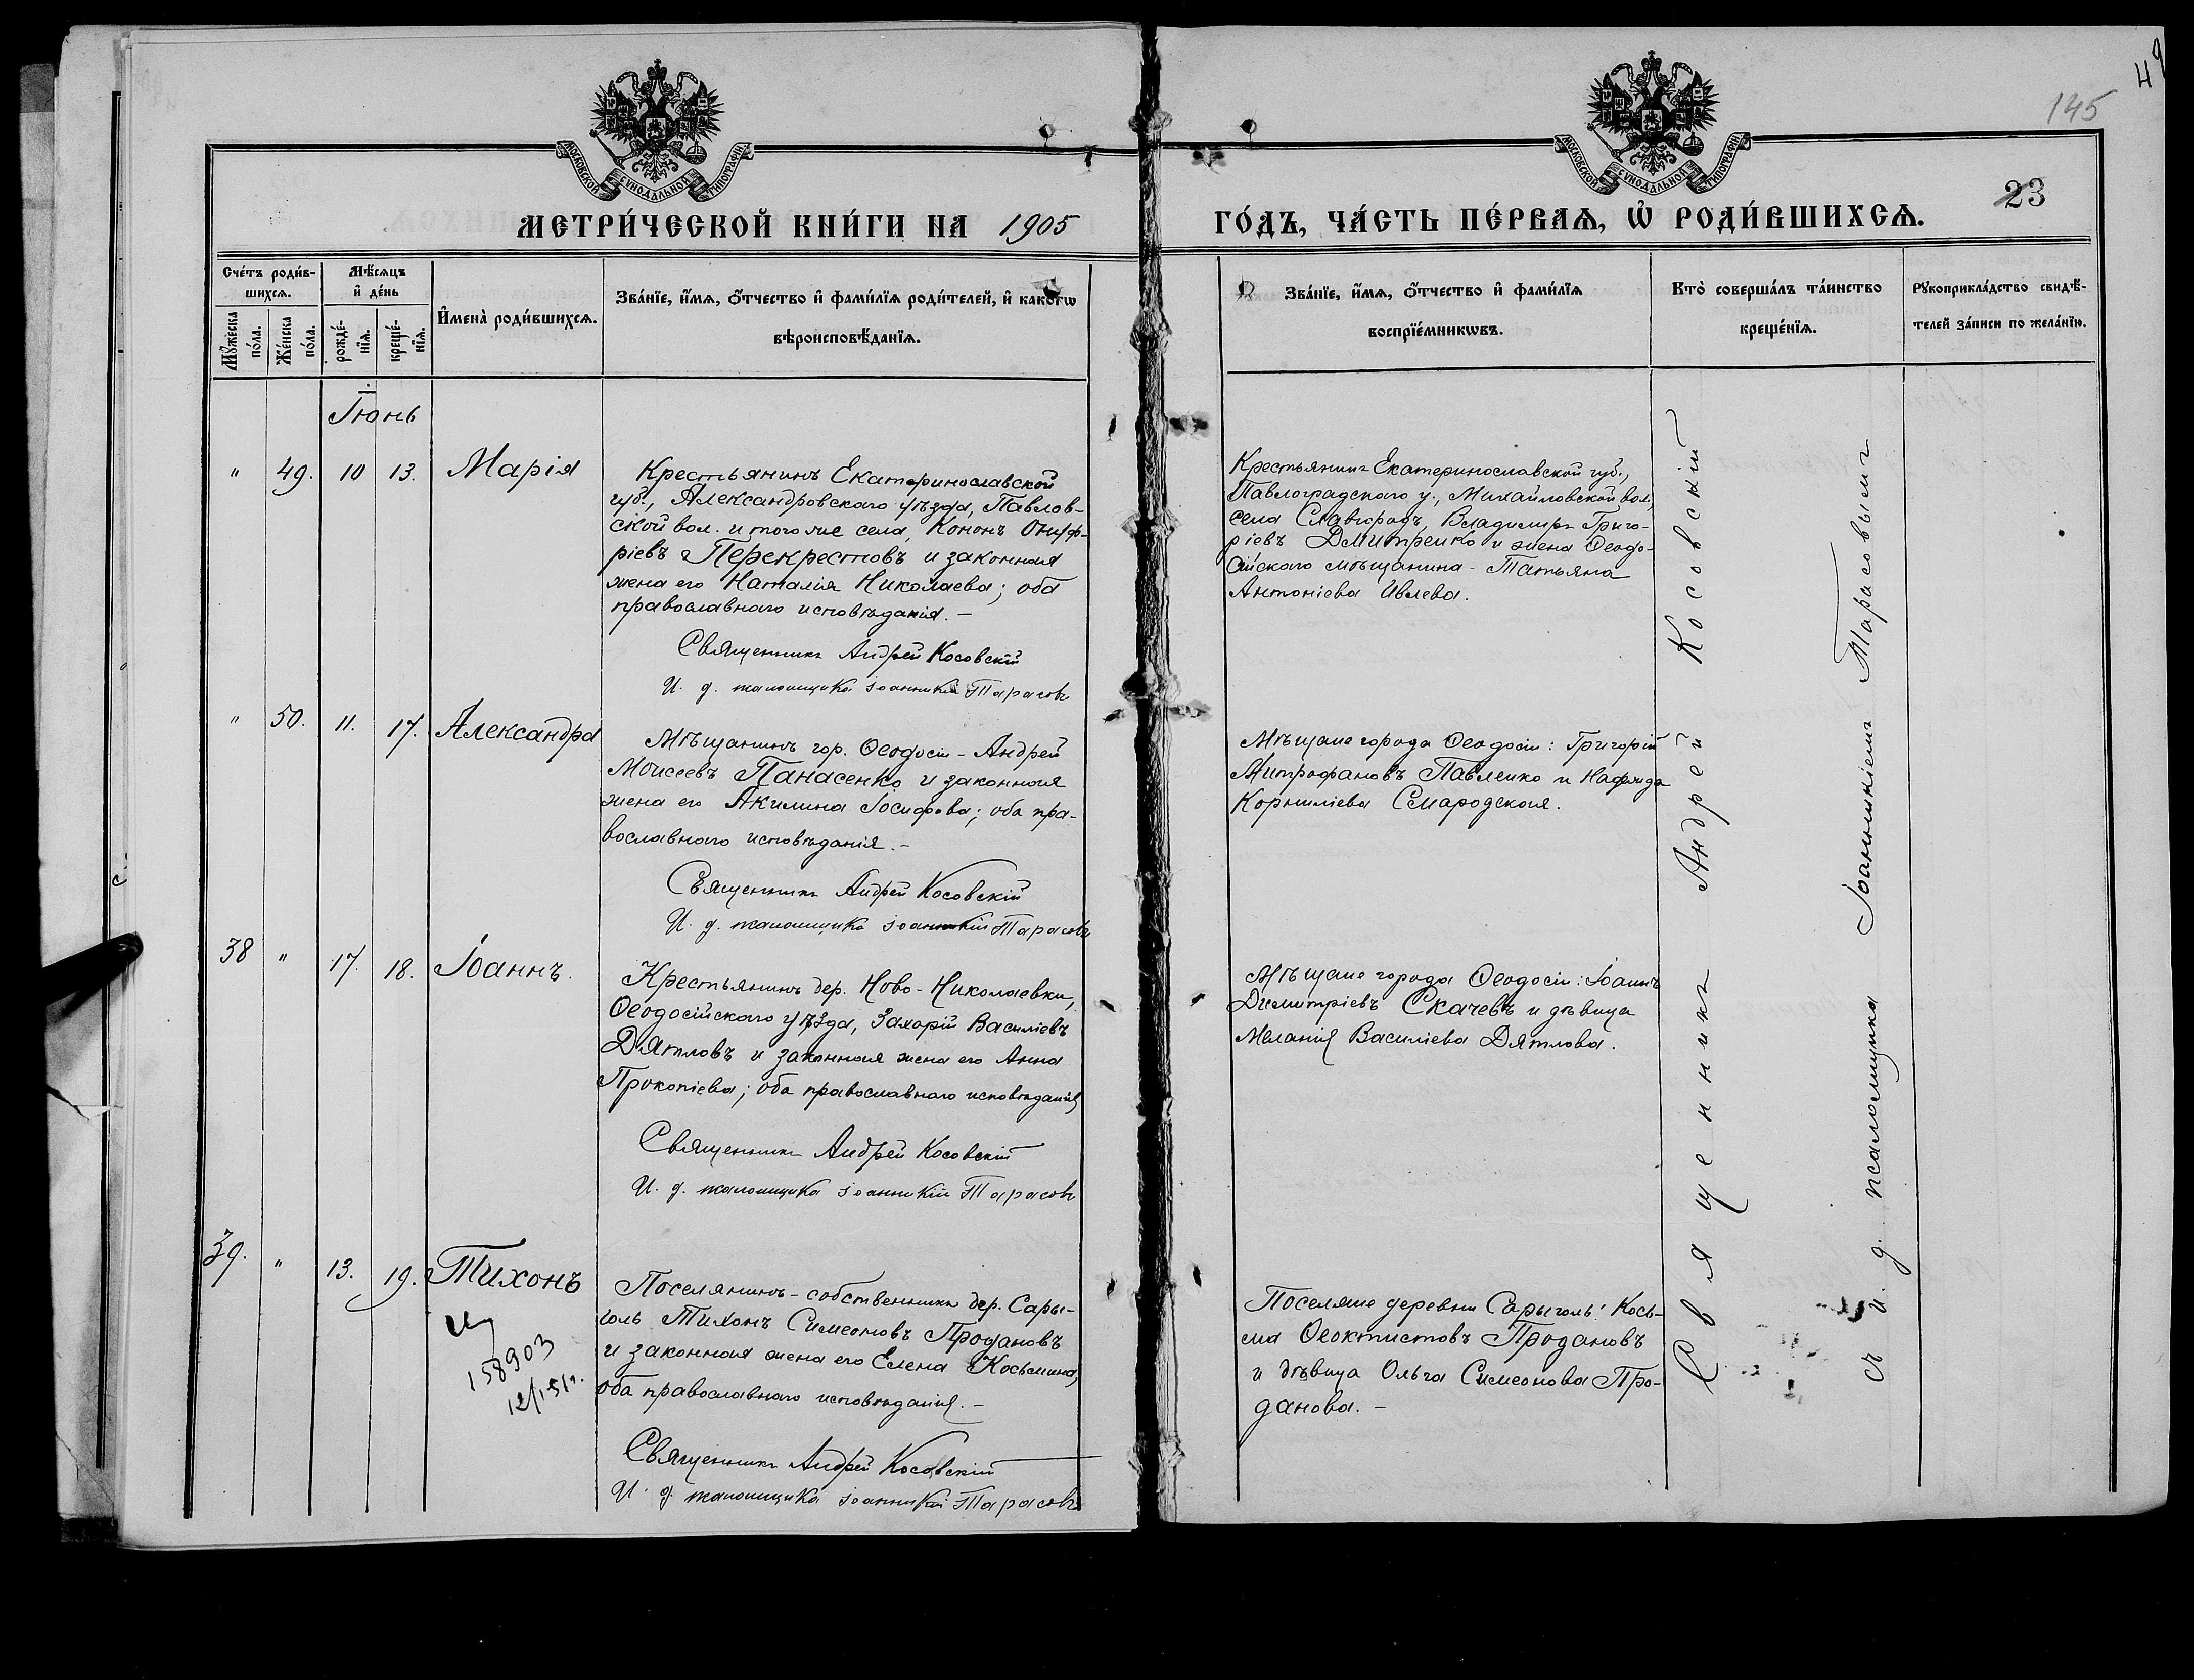 49
145
23
МОСКОВСКОЙ СѴНОДАЛЬНОЙ ТИПОГРАФІИ
МОСКОВСКОЙ СѴНОДАЛЬНОЙ ТИПОГРАФІИ
МЕТРИ́ЧЕСКОЙ КНИ́ГИ НА 1905
ГО́ДЪ, ЧА́СТЬ ПЕ́РВАѦ, Ѽ РОДИ́ВШИХСѦ.
Сче́тъ роди́в-
шихсѧ.
Мѣ́сѧцъ
и҆ де́нь
Мꙋ́жеска
по́ла.
Же́нска
по́ла.
рожде́-
нїѧ.
креще́-
нїѧ.
И҆мена̀ роди́вшихсѧ.
Зва́нїе, и҆́мѧ, ѻ҆́тчество и҆ фами́лїѧ роди́телей, и҆ како́гѡ
вѣроисповѣ́данїѧ.
Зва́нїе, и҆́мѧ, ѻ҆́тчество и҆ фами́лїѧ
воспрїе́мникѡвъ.
Кто̀ соверша́лъ та́инство
креще́нїѧ.
Рꙋкоприкла́дство свидѣ́-
телей за́писи по жела́нїю.
Іюнь
" 49. 10 13. Марія
Крестьянинъ Екатеринославской
губ., Александровскаго уѣзда, Павлов-
ской вол. и того же села, Кононъ Онуф-
ріевъ Перекрестовъ и законная
жена его Наталія Николаева; оба
православнаго исповѣданія.-
Священникъ Андрей Косовскій
И. д. псаломщика Іоанникій Тарасовъ
Крестьянинъ Екатеринославской губ.,
Павлоградскаго у., Михайловской вол.,
села Славгородъ, Владимиръ Григо-
ріевъ Дмитренко и жена Ѳеодо-
сійскаго мѣщанина - Татьяна
Антоніева Ивлева.
" 50. 11. 17. Александра
Мѣщанинъ гор. Ѳеодосіи - Андрей
Моисеевъ Панасенко и законная
жена его Акилина Іосифова; оба пра-
вославнаго исповѣданія.-
Священникъ Андрей Косовскій
И. д. псаломщика Іоанникій Тарасовъ
Мѣщане города Ѳеодосіи: Григорій
Митрофановъ Павленко и
Корниліева Смародская.
38 " 17. 18. Іоаннъ.
Крестьянинъ дер. Ново-Николаевки,
Ѳеодосійскаго уѣзда, Захарій Василіевъ
Дятловъ и законная жена его Анна
Прокопіева; оба православнаго исповѣданія
Священникъ Андрей Косовскій
И. д. псаломщика Іоанникій Тарасовъ
Мѣщане города Ѳеодосіи: Іоаннъ
Димитріевъ Скачевъ и дѣвица
Меланія Василіева Дятлова.
39. " 13. 19. Тихонъ
158903
12/I-51г.
Поселянинъ-собственникъ дер. Сары-
голь Тихонъ Симеоновъ Продановъ
и законная жена его Елена Косьмина,
оба православнаго исповѣданія.-
Священникъ Андрей Косовскій
И. д. псаломщика Іоанникій Тарасовъ
Поселяне деревни Сарыголь: Кось-
ма Ѳеоктистовъ Продановъ
и дѣвица Ольга Симеонова Про-
данова.-
Священникъ Андрей Косовскій
съ и. д. псаломщика Іоанникіемъ Тарасовымъ